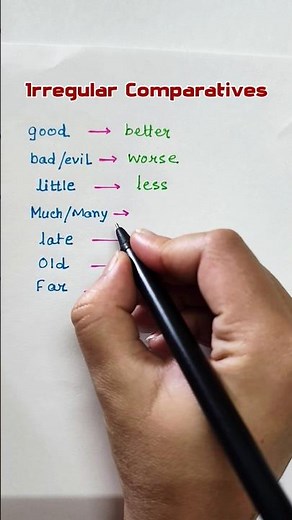 Irregular Comparatives
good → better
bad/evil → worse
little → less
Much/Many →
late →
Old →
Far